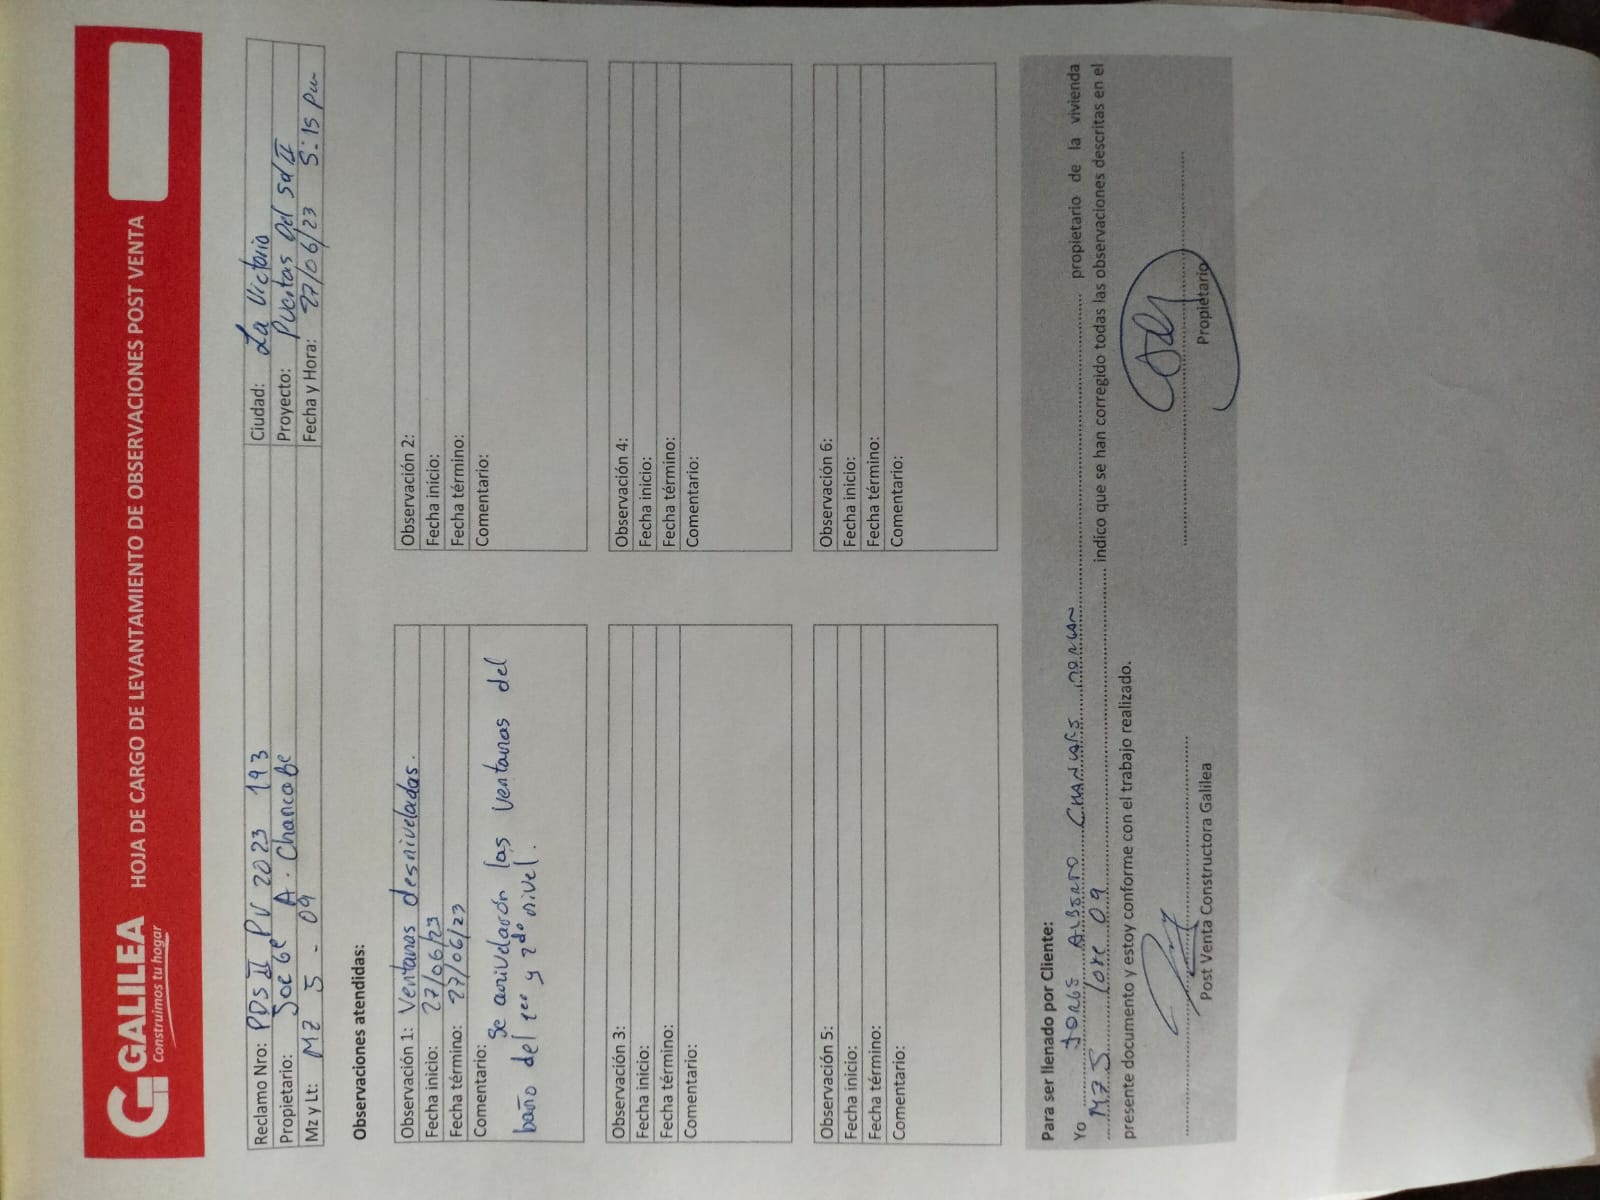 GALILEA
Construimos tu hogar
HOJA DE CARGO DE LEVANTAMIENTO DE OBSERVACIONES POST VENTA
Reclamo Nro: PDS II PV 2023 193 Ciudad: La Victoria
Propietario: A. Chancafe Proyecto: Puertas del sol II
Mz y Lt: MZ 5 - 09 Fecha y Hora: 27/06/23 5:15 pm
Observaciones atendidas:
Observación 1: Ventanas desniveladas.
Fecha inicio: 27/06/23
Fecha término: 27/06/23
Comentario: Se anivelarón las ventanas del
baño del 1er y 2do nivel.
Observación 2:
Fecha inicio:
Fecha término:
Comentario:
Observación 3:
Fecha inicio:
Fecha término:
Comentario:
Observación 4:
Fecha inicio:
Fecha término:
Comentario:
Observación 5:
Fecha inicio:
Fecha término:
Comentario:
Observación 6:
Fecha inicio:
Fecha término:
Comentario:
Para ser llenado por Cliente:
Yo JORGE ALBERTO propietario de la vivienda
MZ 5 LOTE 09 indico que se han corregido todas las observaciones descritas en el
presente documento y estoy conforme con el trabajo realizado.
Post Venta Constructora Galilea
Propietario